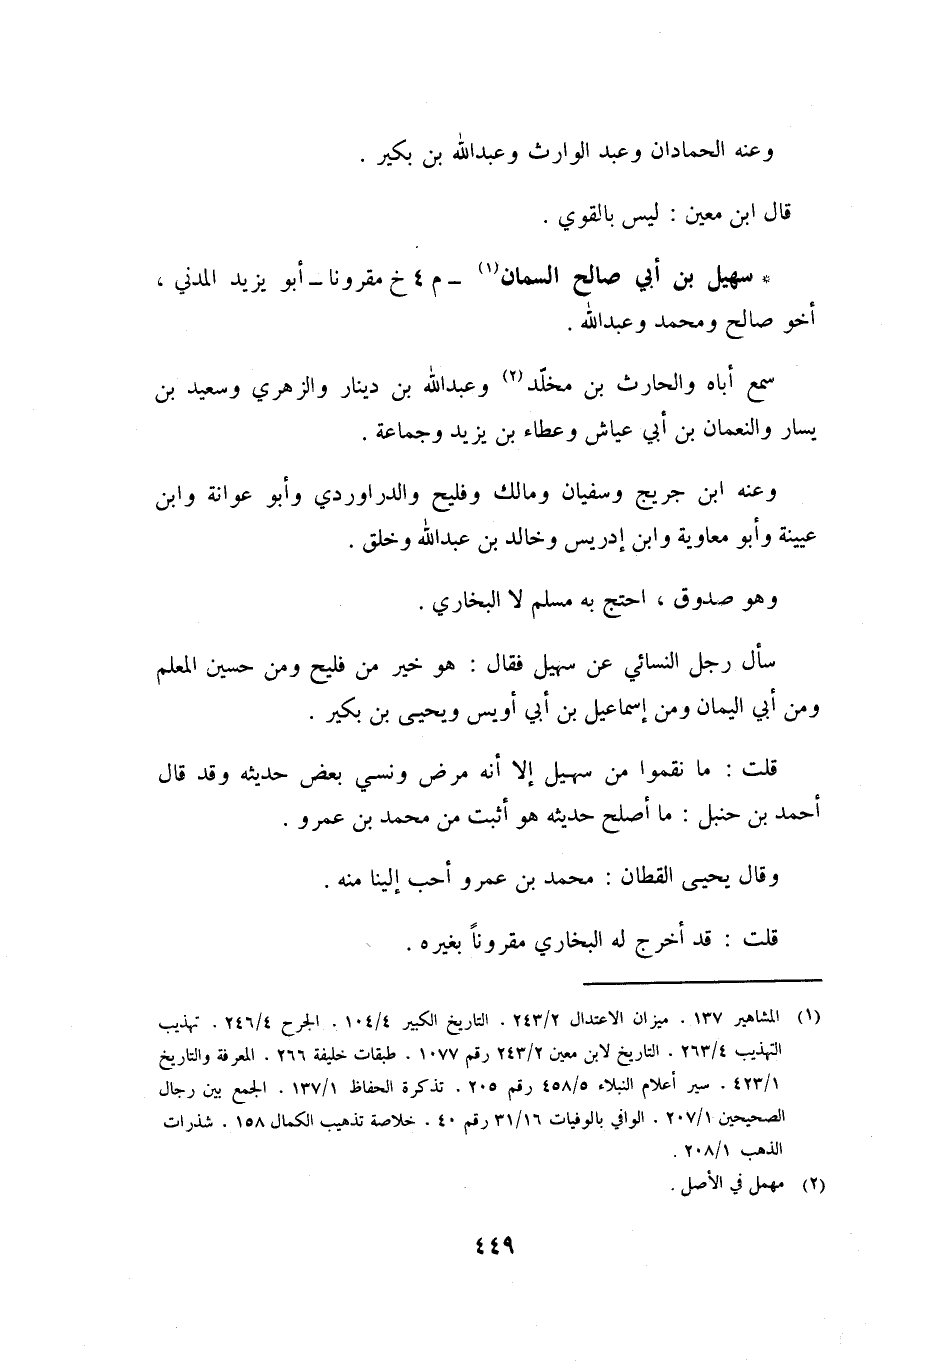 وعنه الحمادان وعبد الوارث وعبدالله بن بكير .
قال ابن معين : ليس بالقوي .
* سهيل بن أبي صالح السمان(١) ــ م ٤ خ مقرونا ــ أبو يزيد المدني ،
أخو صالح ومحمد وعبدالله .
سمع أباه والحارث بن مخلّد(٢) وعبدالله بن دينار والزهري وسعيد بن
يسار والنعمان بن أبي عياش وعطاء بن يزيد وجماعة .
وعنه ابن جريج وسفيان ومالك وفليح والدراوردي وأبو عوانة وابن
عيينة وأبو معاوية وابن إدريس وخالد بن عبدالله وخلق .
وهو صدوق ، احتج به مسلم لا البخاري .
سأل رجل النسائي عن سهيل فقال : هو خير من فليح ومن حسين المعلم
ومن أبي اليمان ومن إسماعيل بن أبي أويس ويحيى بن بكير .
قلت : ما نقموا من سهيل إلا أنه مرض ونسي بعض حديثه وقد قال
أحمد بن حنبل : ما أصلح حديثه هو أثبت من محمد بن عمرو .
وقال يحيى القطان : محمد بن عمرو أحب إلينا منه .
قلت : قد أخرج له البخاري مقروناً بغيره .
(١) المشاهير ١٣٧ . ميزان الاعتدال ٢٤٣/٢ . التاريخ الكبير ١٠٤/٤ . الجرح ٢٤٦/٤ . تهذيب
التهذيب ٢٦٣/٤ . التاريخ لابن معين ٢٤٣/٢ رقم ١٠٧٧ . طبقات خليفة ٢٦٦ . المعرفة والتاريخ
٤٢٣/١ . سير أعلام النبلاء ٤٥٨/٥ رقم ٢٠٥ . تذكرة الحفاظ ١٣٧/١ . الجمع بين رجال
الصحيحين ٢٠٧/١ . الوافي بالوفيات ٣١/١٦ رقم ٤٠ . خلاصة تذهيب الكمال ١٥٨ . شذرات
الذهب ٢٠٨/١ .
(٢) مهمل في الأصل .
٤٤٩